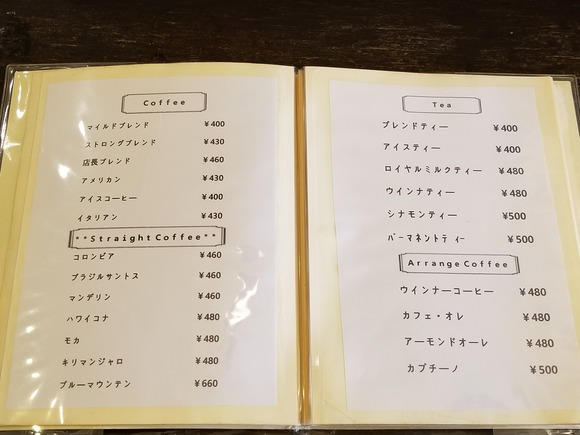 Coffee
マイルドブレンド ￥400
ストロングブレンド ￥430
店長ブレンド ￥460
アメリカン ￥430
アイスコーヒー ￥400
イタリアン ￥430
**Straight Coffee**
コロンビア ￥460
ブラジルサントス ￥460
マンデリン ￥460
ハワイコナ ￥480
モカ ￥480
キリマンジャロ ￥480
ブルーマウンテン ￥660
Tea
ブレンドティー ￥400
アイスティー ￥400
ロイヤルミルクティー ￥480
ウインナティー ￥480
シナモンティー ¥500
パーマネントティー ￥500
Arrange Coffee
ウインナーコーヒー ￥480
カフェ・オレ ￥480
アーモンドオーレ ￥480
カプチーノ ￥500